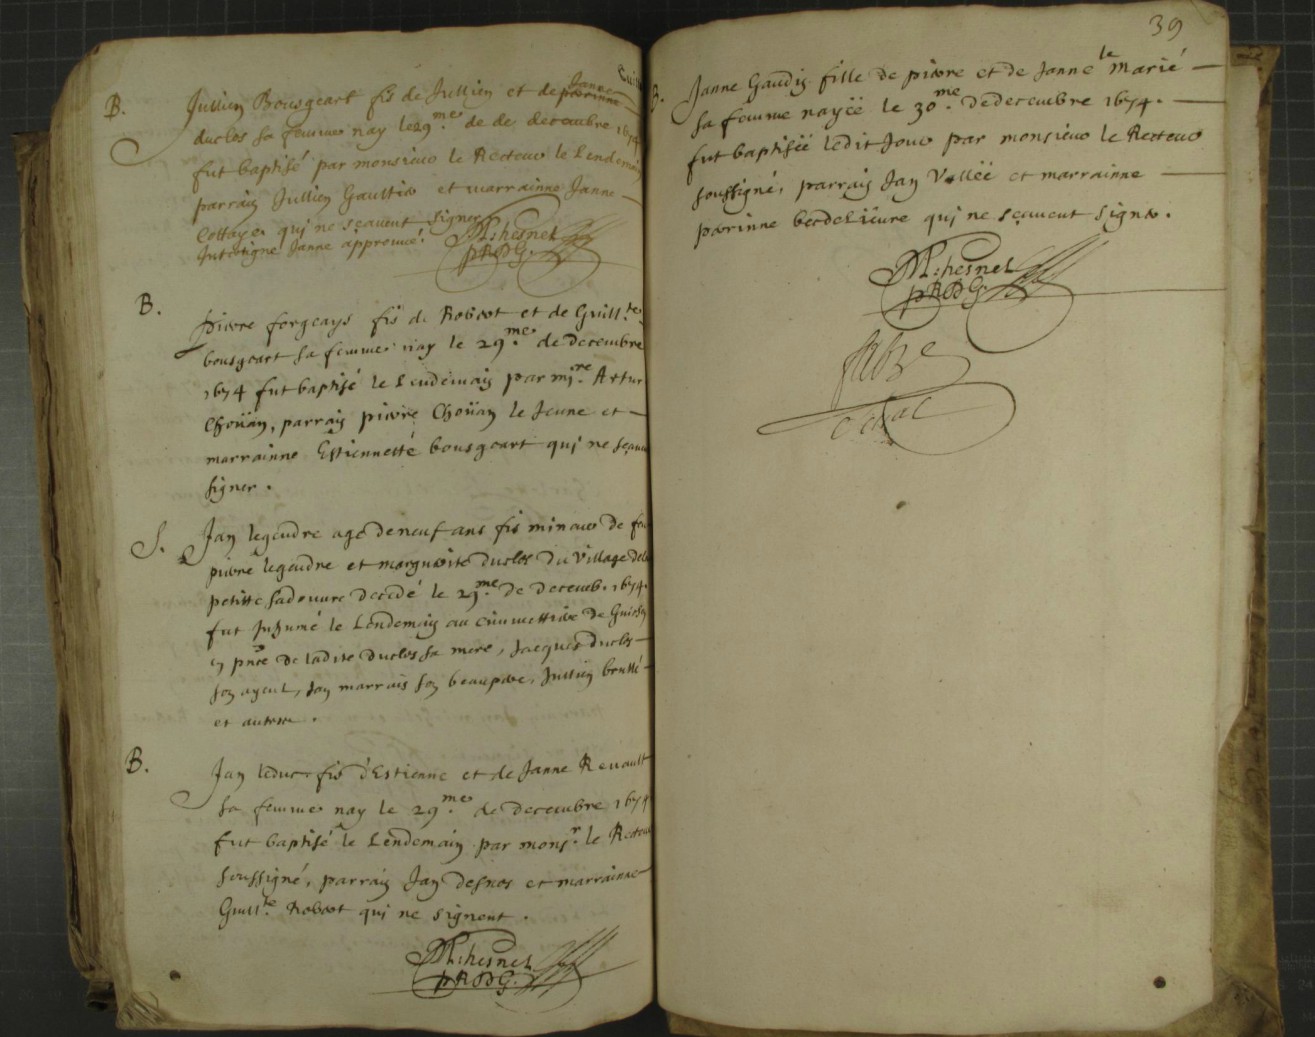 B. Jullien Bousgeart fis de Jullien et de perrinne Janne
duclos sa femme nay le 29.me de de decembre 1674
fut baptisé par monsieur le Recteur le Lendemain
parrain Jullien Gaultier et marrainne Janne
Cottays qui ne sçavent signer
Interligne Janne approuvé.
M: hesnel
pRdG.
B. pierre forgeays fis de Robert et de Guill.te
bousgeart sa femme nay le 29.me de decembre
1674 fut baptisé le Lendemain par mi.re Artur
Choüan, parrain pierre Choüan le Jeune et
marrainne Estiennette bousgeart qui ne sçavent
signer.
S. Jan legendre age de neuf ans fis mineur de feu
pierre legendre et marguerite duclos du village de la
petitte decedé le 29.me de decemb. 1674.
fut Inhumé le Lendemain au cimmettiere de
en pnce de ladite duclos sa mere, Jacques duclos
son ayeul, Jan marrais son beaupere, Jullien
et autres.
B. Jan leduc fis d'Estienne et de Janne Renault
sa femme nay le 29.me de decembre 1674
fut baptisé le Lendemain par monsr. le Recteur
soussigné, parrain Jan desnos et marrainne
Guill.te Robert qui ne signent.
M: hesnel
pRdG.
39
B. Janne Gaudin fille de pierre et de Janne le marié
sa femme nayëe le 30.me de decembre 1674.
fut baptisëe ledit Jour par monsieur le Recteur
soussigné, parrain Jan Vallëe et marrainne
perrinne becdeLievre qui ne sçavent signer.
M: hesnel
pRdG.